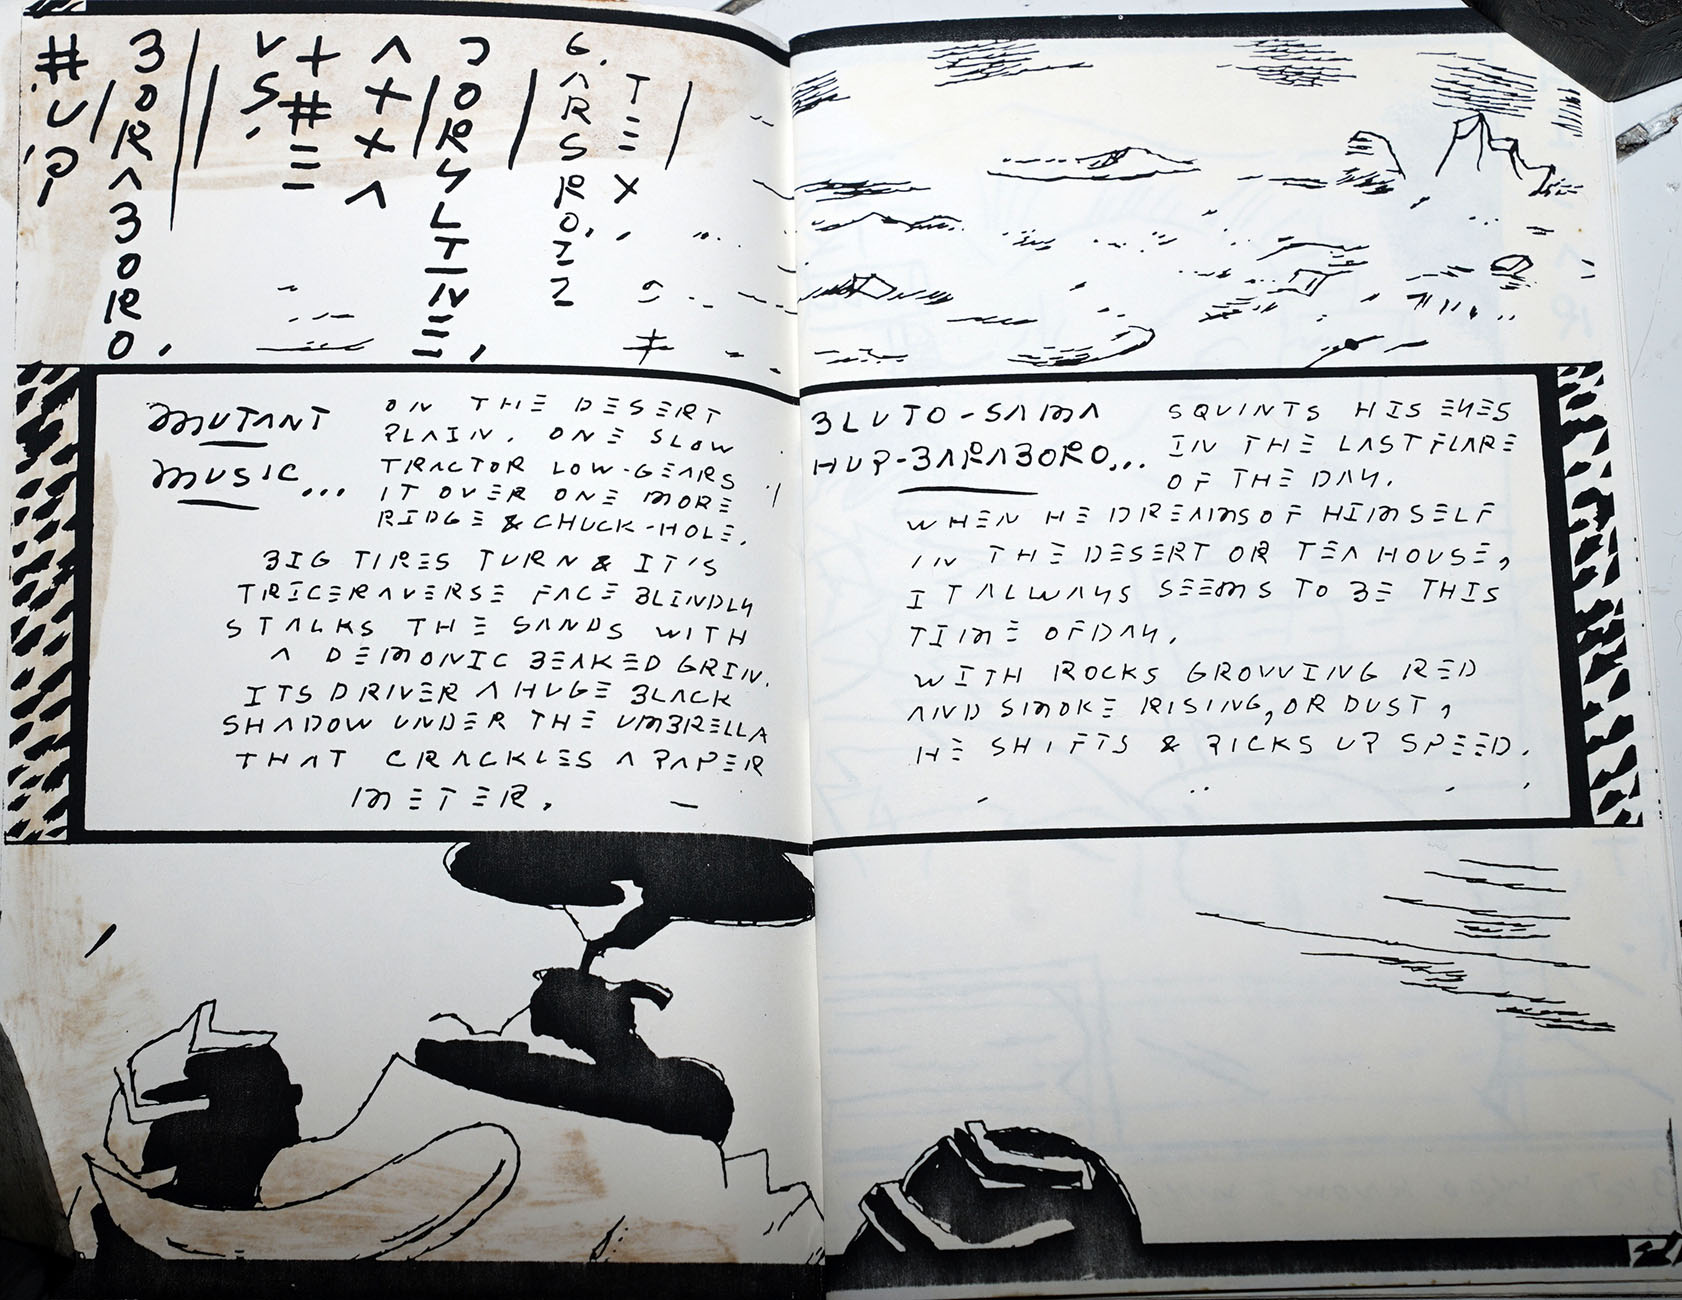 MUTANT
MUSIC...
ON THE DESERT
PLAIN. ONE SLOW
TRACTOR LOW-GEARS
IT OVER ONE MORE
RIDGE & CHUCK-HOLE.
BIG TIRES TURN & IT'S
TRICERAVERSE FACE BLINDLY
STALKS THE SANDS WITH
A DEMONIC BEAKED GRIN.
ITS DRIVER A HUGE BLACK
SHADOW UNDER THE UMBRELLA
THAT CRACKLES A PAPER
METER.
BLUTO-SAMA
HUP-BARABORO...
SQUINTS HIS EYES
IN THE LAST FLARE
OF THE DAY.
WHEN HE DREAMS OF HIMSELF
IN THE DESERT OR TEA HOUSE,
IT ALWAYS SEEMS TO BE THIS
TIME OF DAY.
WITH ROCKS GROWING RED
AND SMOKE RISING, OR DUST,
HE SHIFTS & PICKS UP SPEED.